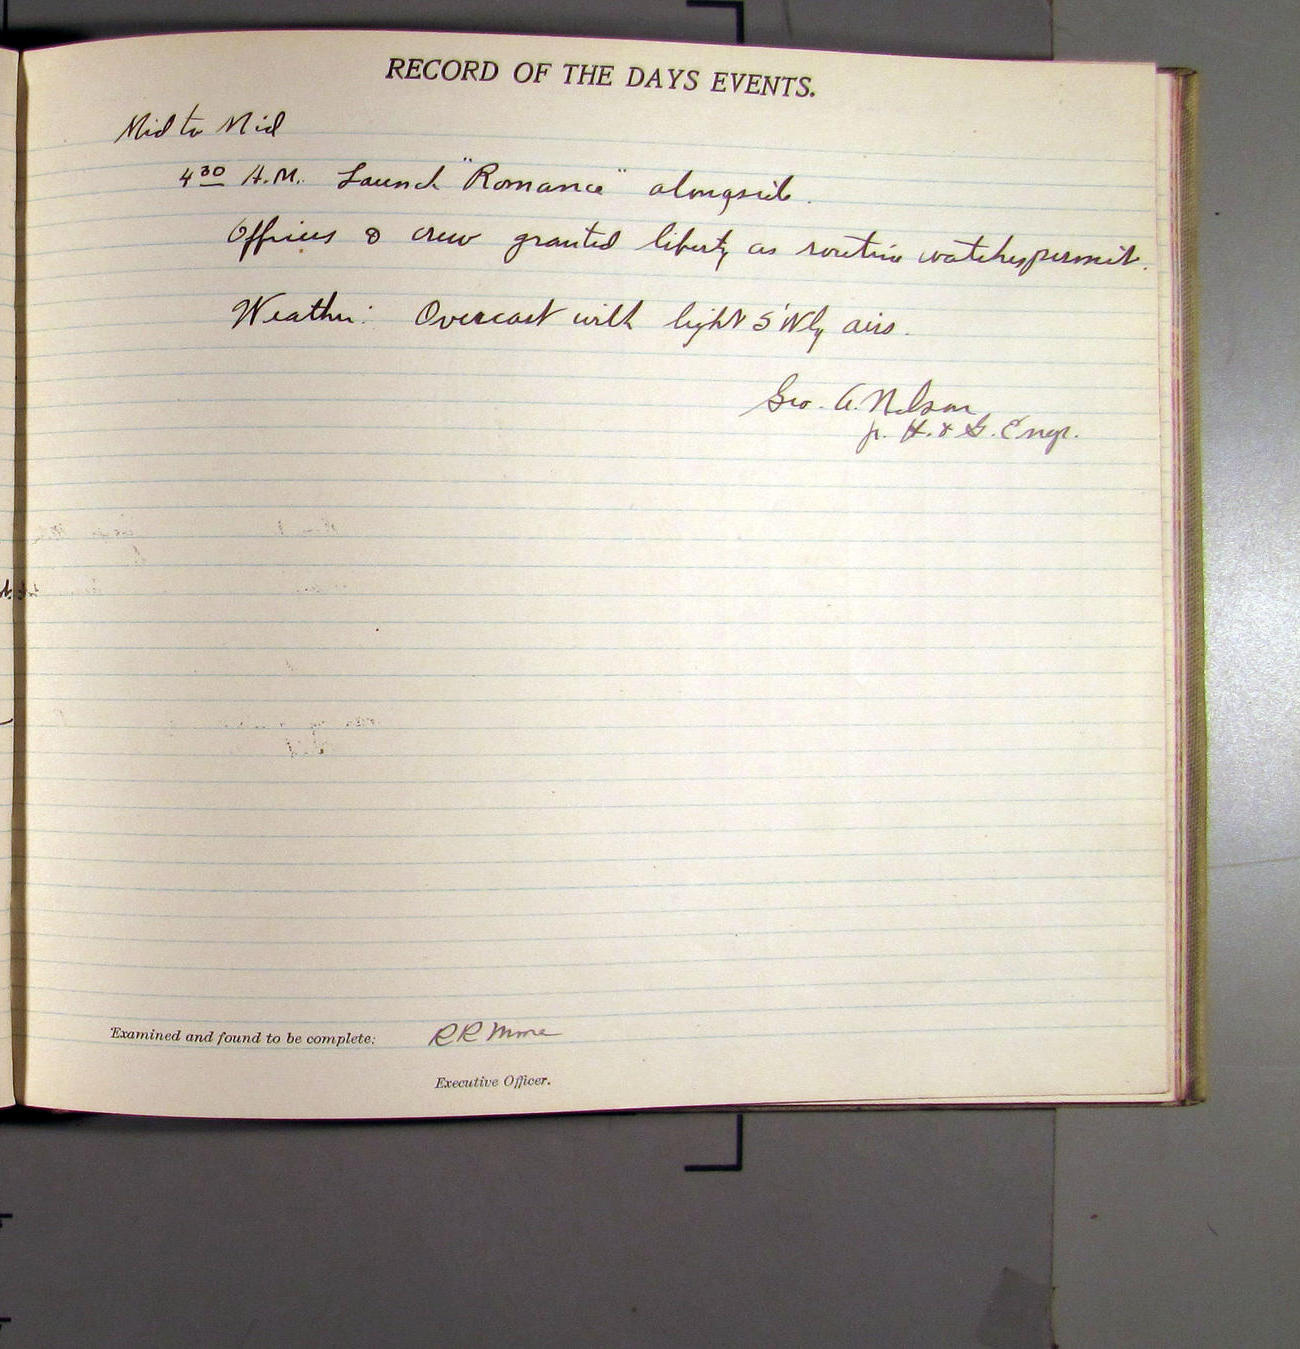 RECORD OF THE DAYS EVENTS.
Mid to Mid
4³⁰ A.M. Launch "Romance" alongside.
Officers & crew granted liberty as routine watches permit.
Weather: Overcast with light S'Wly airs.
Geo. A. Nelson
jr. H. & G. Engr.
Examined and found to be complete:
R R Moore
Executive Officer.